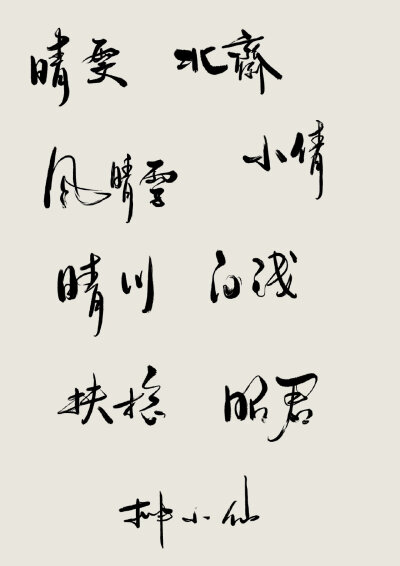 晴雯 北齋
风晴雪 小倩
晴川 白浅
扶摇 昭君
小仙